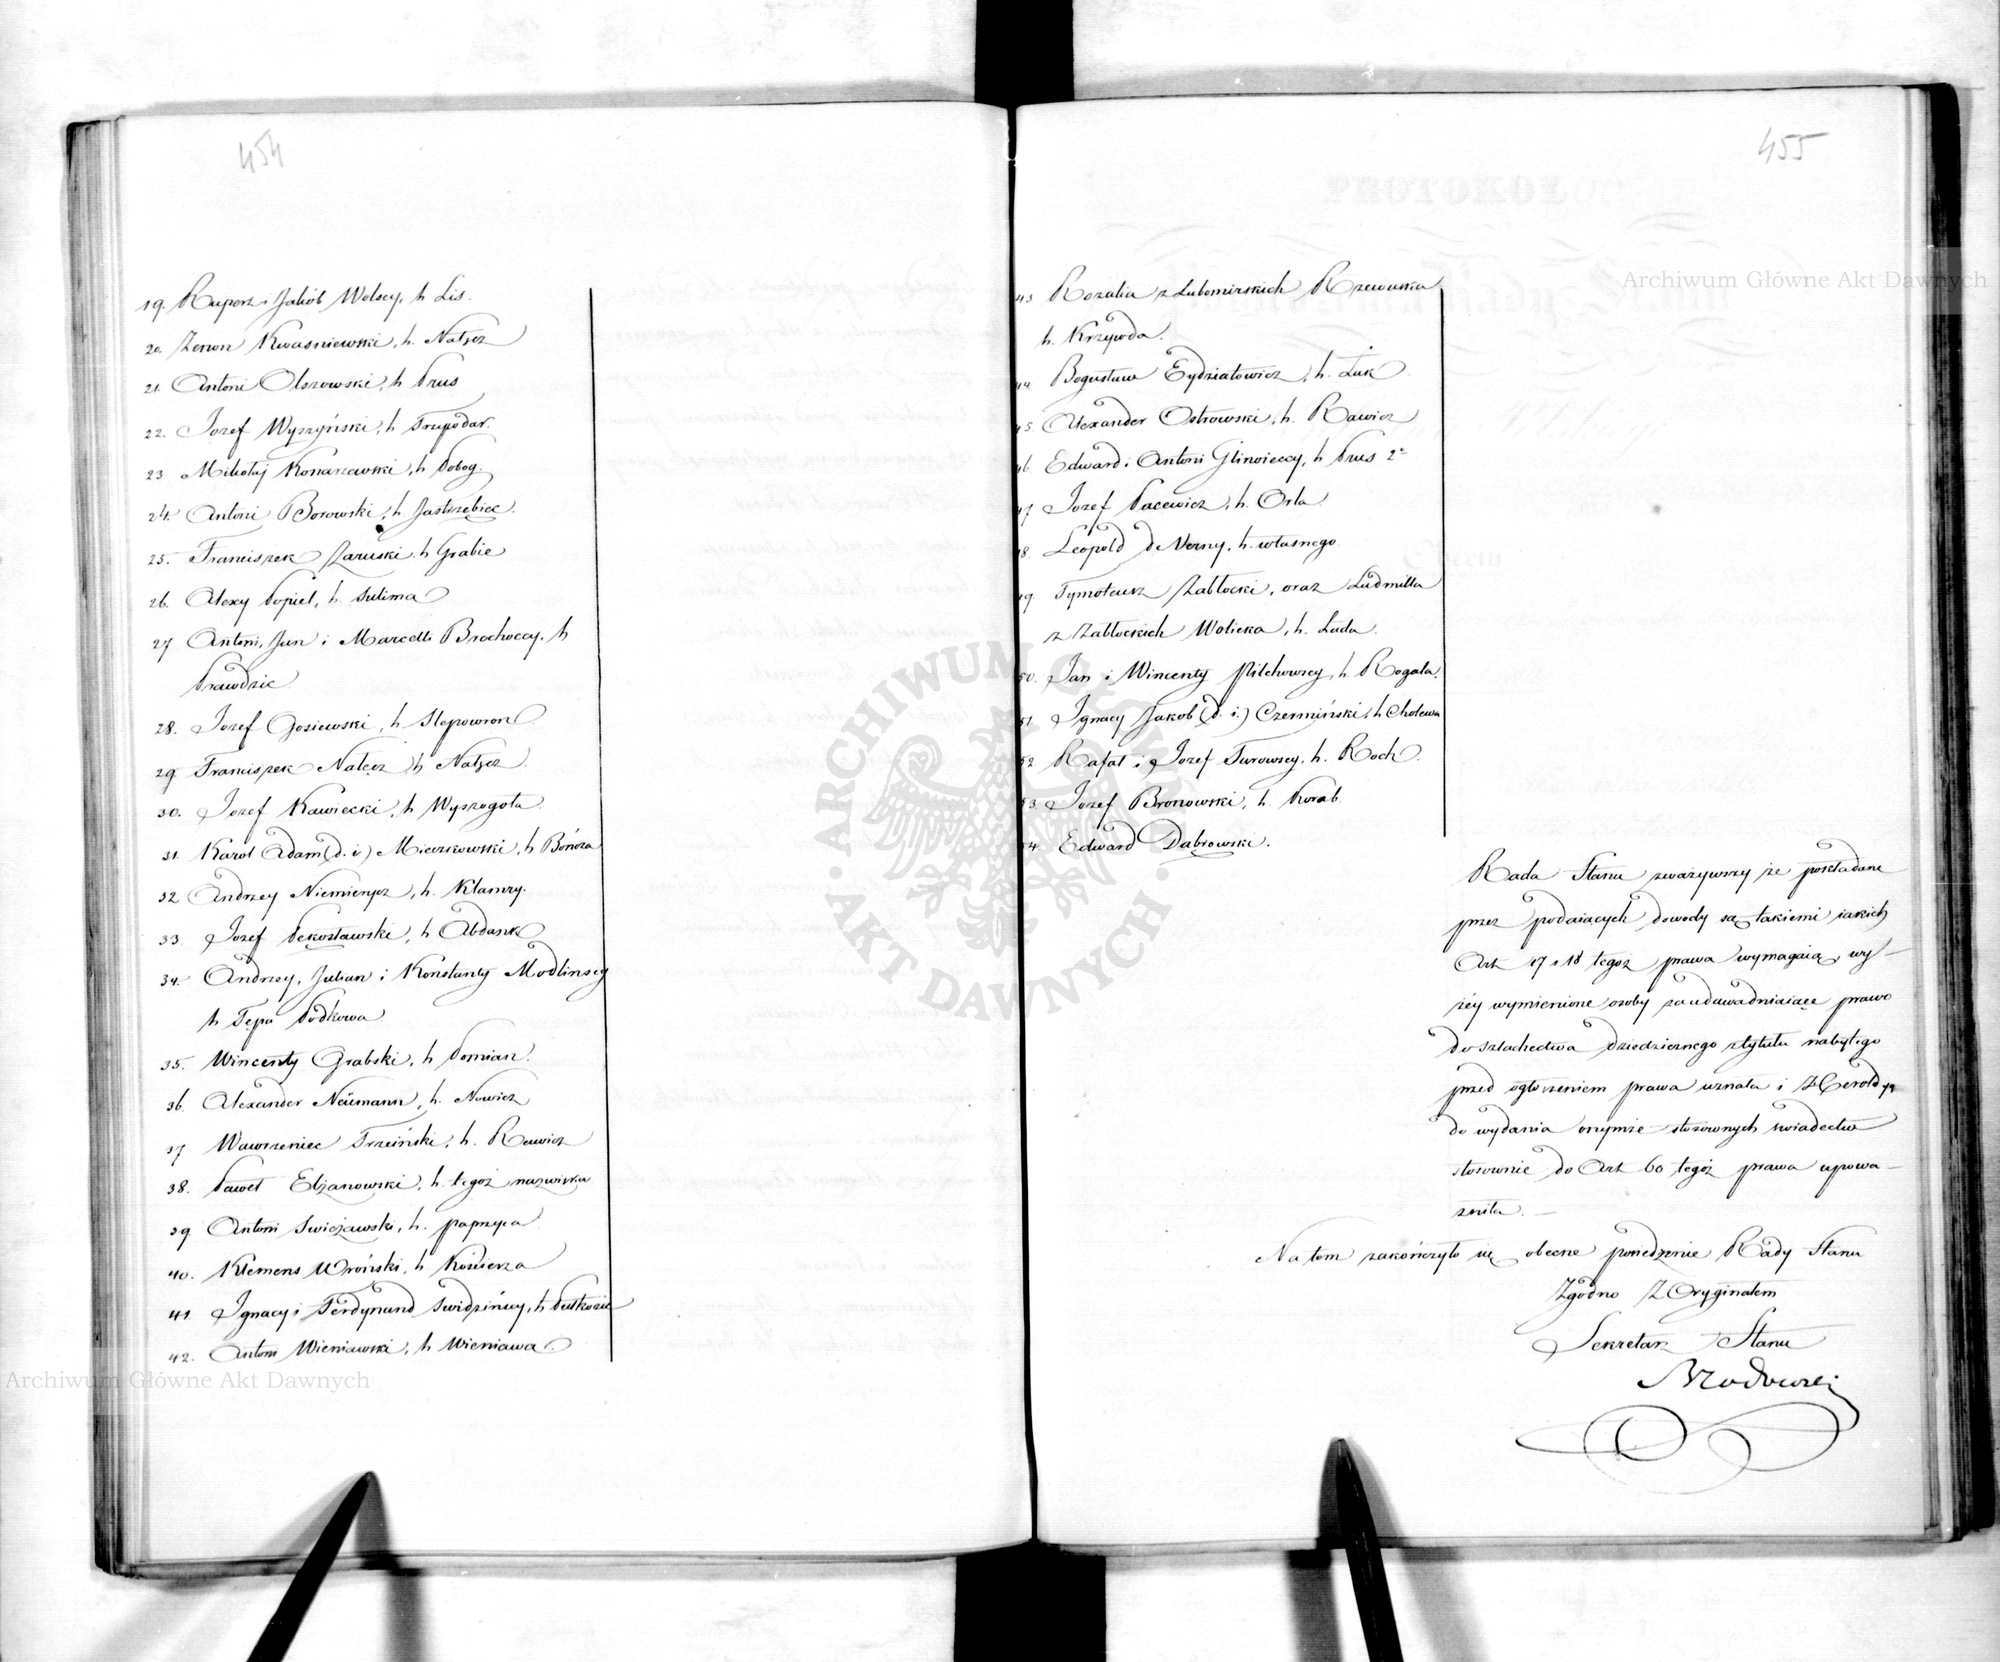 454
19. Kacper i Jakób Wolscy, h Lis.
20. Zenon Kwasniewski, h. Nałęcz
21. Antoni Olszowski, h Prus
22. Jozef Wyszyński, h Trzywdar.
23 Mikołaj Konarzewski, h Pobog.
24. Antoni Borowski, h Jastrzębiec.
25. Franciszek Zaruski, h Grabie
26. Alexy Popiel, h. Sulima
27 Antoni, Jan i Marcelli Brochoccy, h
Prawdzic
28. Jozef Gosiewski, h Slepowron
29. Franciszek Nałęcz h Nałęcz.
30. Jozef Kawiecki, h Wyszogota
31. Karol Adam (d. i.) Mieczkowski, h Bończa
32 Andrzey Niemierycz, h. Klamry.
33. Jozef Pękosławski, h Abdank
34. Andrzey, Julian i Konstanty Modlinscy
h Tępa Podkowa
35. Wincenty Grabski, h Pomian.
36. Alexander Neümann, h. Nowicz
37 Wawrzeniec Trzciński, h. Rawicz
38. Paweł Elżanowski, h. tegoż nazwiska
39 Antoni Swieżawski, h. paprzyca
40. Klemens Wroński, h Kościesza
41. Ignacy i Ferdynand Swidzińscy, h Pułkozic
42. Antoni Wieniawski, h Wieniawa
455
43 Rozalia z Lubomirskich Rzewuska
h. Krzywda.
44 Bogusław Eydziatowicz, h. Łuk
45. Alexander Ostrowski, h. Rawicz
46 Edward i Antoni Glinieccy, h Prus 2o
47 Jozef Pacewicz, h. Orla
48. Leopold de Verny, h. własnego.
49. Tymoteusz Zabłocki, oraz Ludmilla
z Zabłockich Wolicka, h. Łada.
50. Jan i Wincenty Pilchowscy, h Rogala.
51. Ignacy Jakob (d. i.) Czermiński, h Cholewa
52. Rafał i Jozef Turowscy, h. Roch.
53. Jozef Bronowski, h. Korab
54. Edward Dąbrowski.
Rada Stanu zważywszy że poskładane
przez podaiących dowody są takiemi iakich
Art 17 i 18 tegoż prawa wymagaią, wy-
żey wymienione osoby za udawadniaiące prawo
do szlachectwa dziedzicznego z tytułu nabytego
przed ogłoszeniem prawa uznała i Heroldyą
do wydania onymże stosownych swiadectw
stosownie do Art 60 tegoż prawa upowa-
żniła. —
Na tem zakończyło się obecne posiedzenie Rady Stanu
Zgodno Z Oryginałem
Sekretarz Stanu
Archiwum Główne Akt Dawnych
Archiwum Główne Akt Dawnych
ARCHIWUM GŁÓWNE · AKT DAWNYCH ·